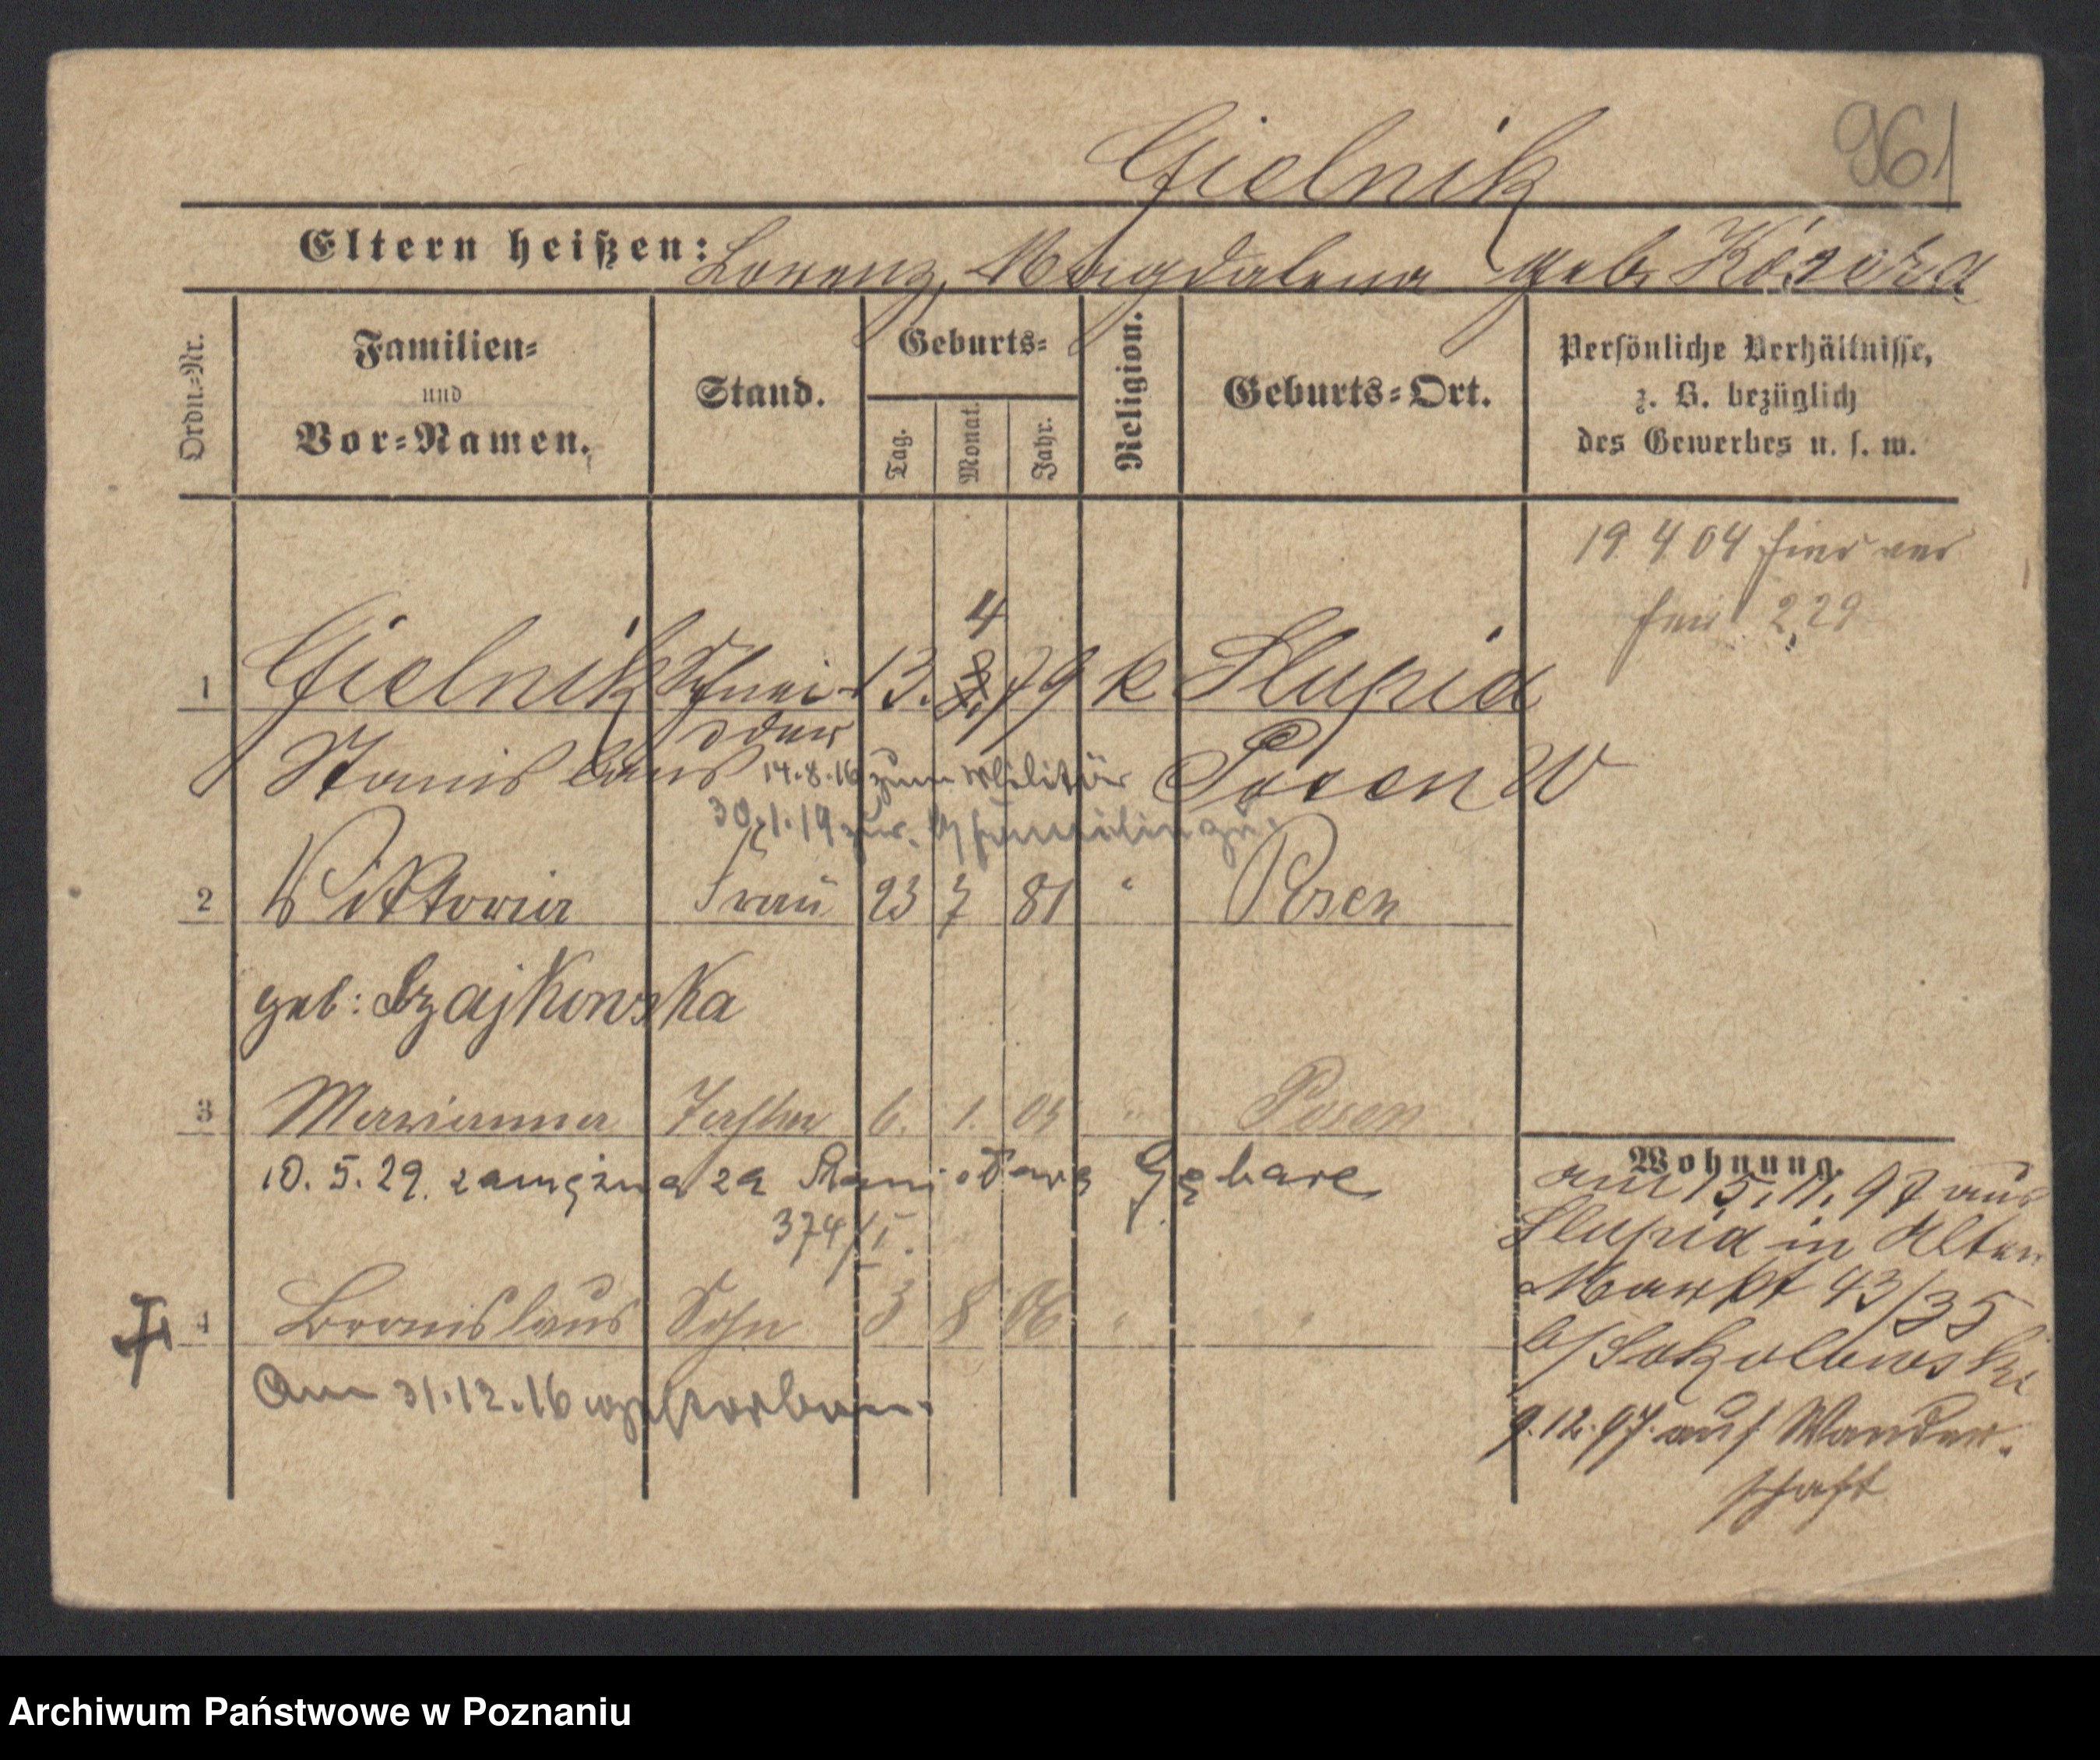 961
Gielnik
Eltern heißen: Lorenz, Magdalena geb. Kozoka
Ordn.=Nr.
Familien=
und
Vor=Namen.
Stand.
Geburts=
Tag.
Monat.
Jahr.
Religion.
Geburts=Ort.
Persönliche Verhältnisse,
z. B. bezüglich
des Gewerbes u. s. w.
19 4 04 hier ver
heir 2,29
4
1 Gielnik Schnei- 13. 8. 79 k Slupia
Stanislaus der Posen W
14.8.16 zum Militär
30.1.19 zur.
2 Viktoria Frau 23 7 81 " Posen
geb: Szajkowska
3 Marianna Tochter 6. 1. 05 " Posen
10. 5. 29. zamężna za Stanisława Gębare
374/I.
4 Bronislaus Sohn 3 8 06 " "
Am 31.12.16 gestorben.
Wohnung.
am 15.11.97 aus
Slupia in Alter
Markt 43/35
b/Sokolowski
9.12.97. auf Wander-
schaft
Archiwum Państwowe w Poznaniu